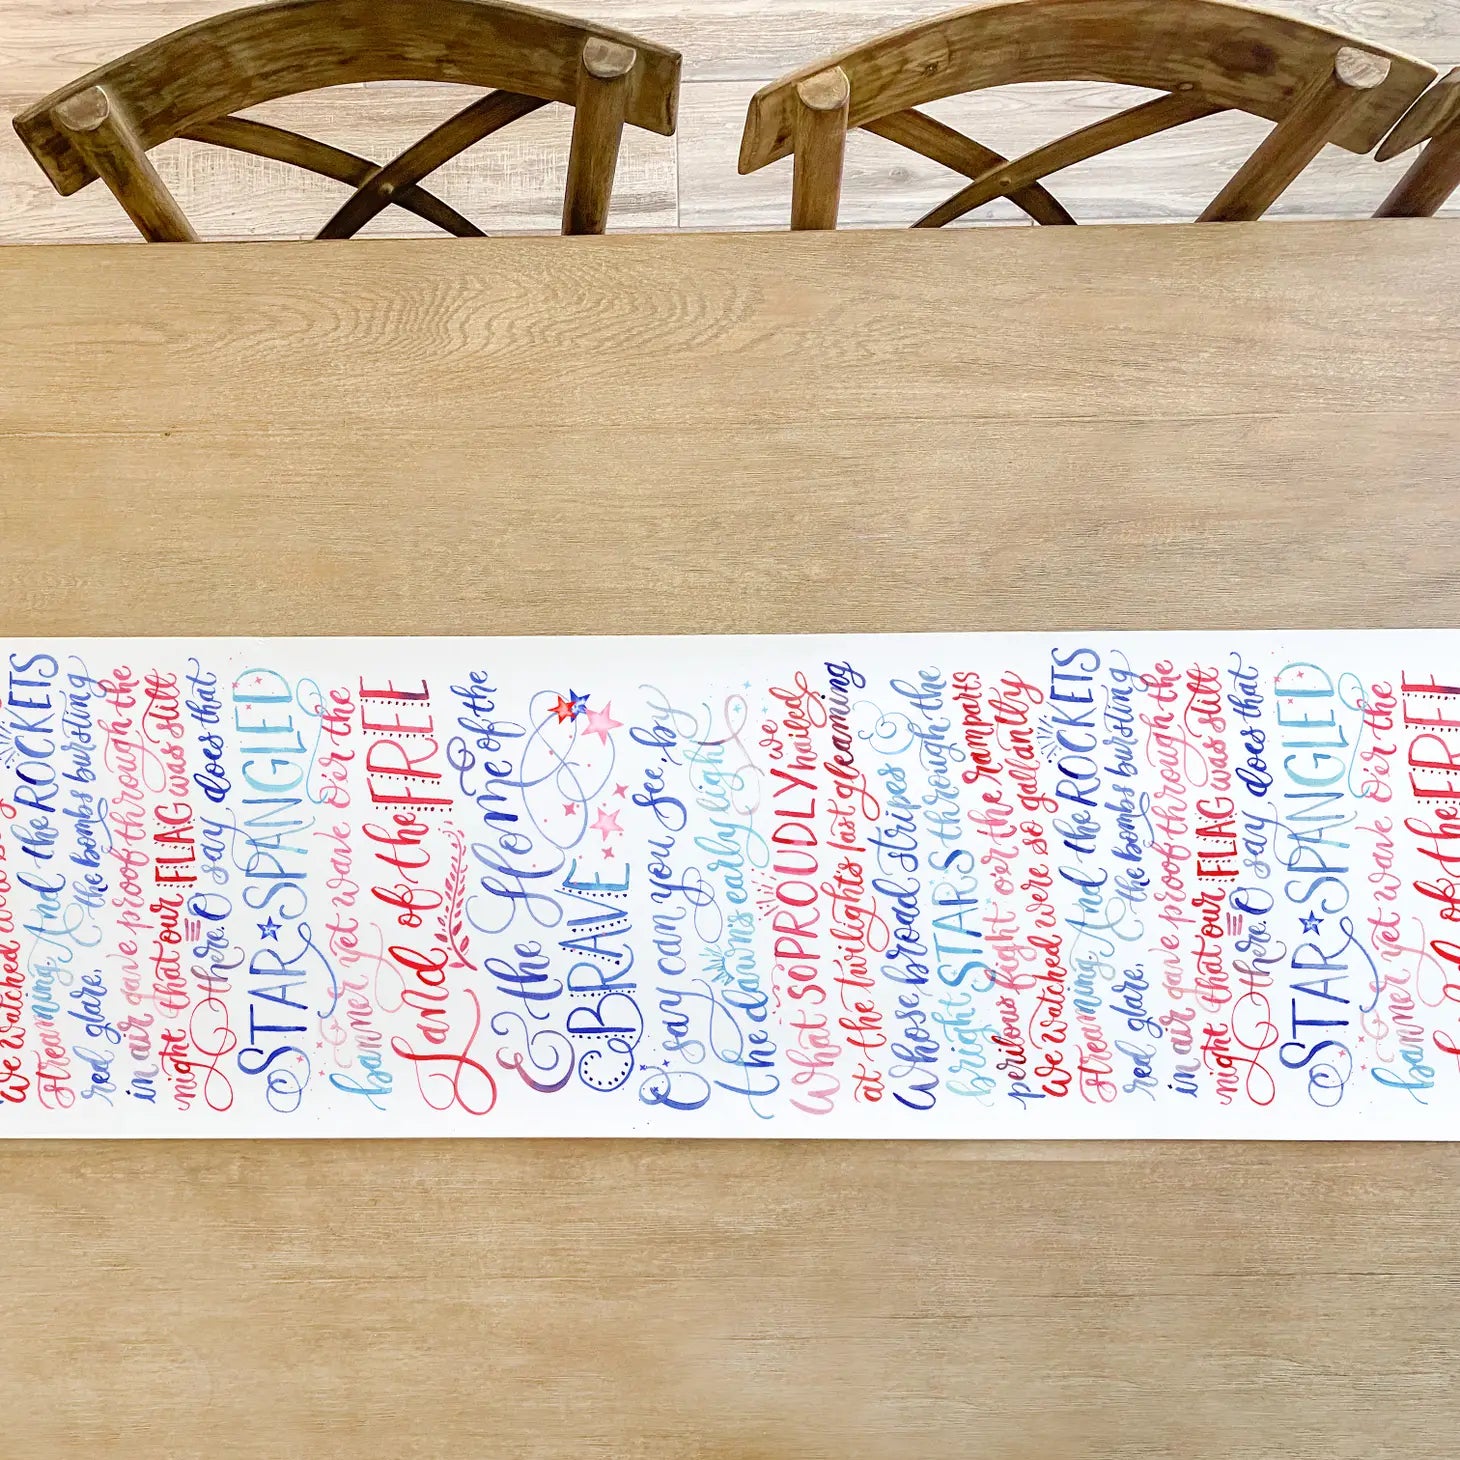 We watched
streaming. And the ROCKETS
red glare, the bombs bursting
in air gave proof through the
night that our FLAG was still
there. O say does that
STAR SPANGLED
banner yet wave O'er the
Land of the FREE
& the Home of the
BRAVE
O say can you see, by
the dawn's early light
What so PROUDLY we hailed
at the twilight's last gleaming
Whose broad stripes &
bright STARS through the
perilous fight o'er the ramparts
We watched were so gallantly
streaming. And the ROCKETS
red glare, the bombs bursting
in air gave proof through the
night that our FLAG was still
there. O say does that
STAR SPANGLED
banner yet wave O'er the
Land of the FREE